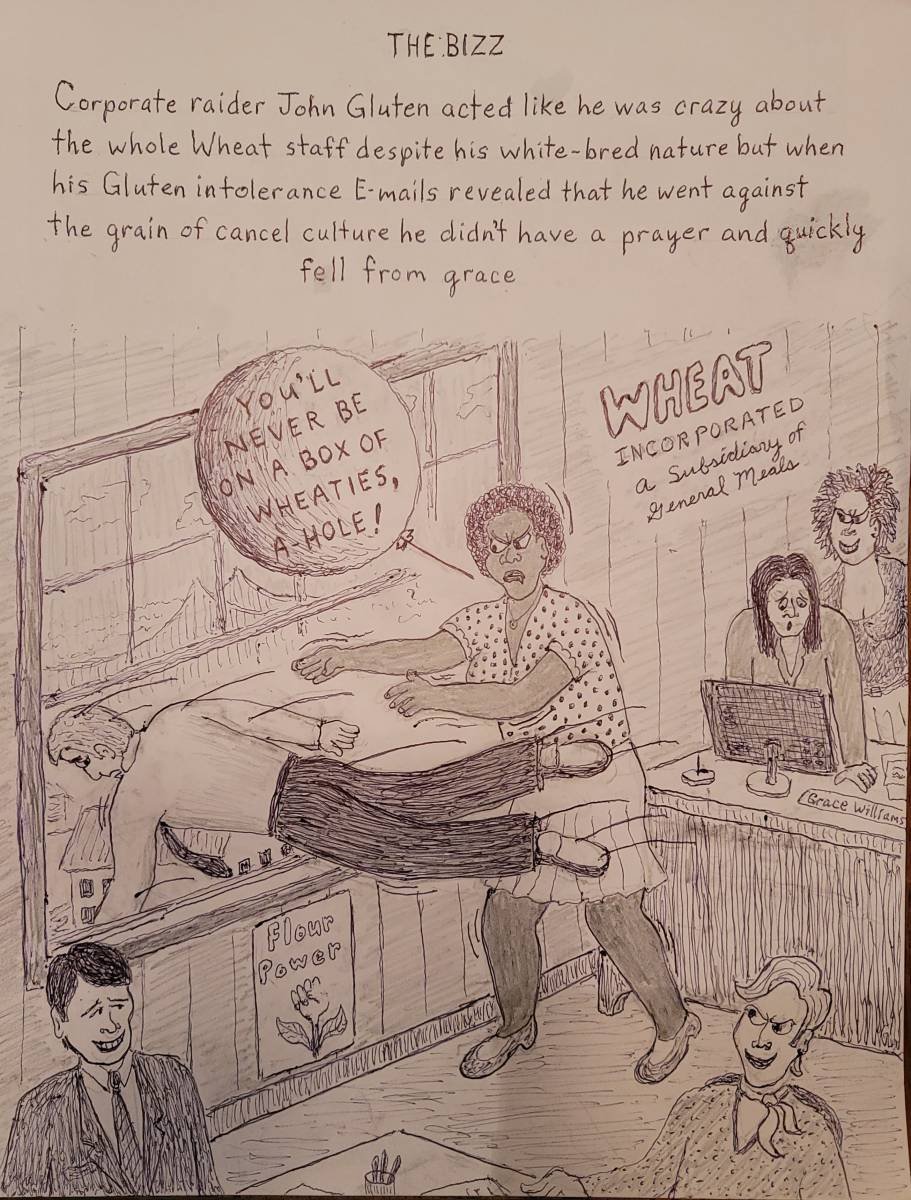 THE BIZZ
Corporate raider John Gluten acted like he was crazy about
the whole Wheat staff despite his white-bred nature but when
his Gluten intolerance E-mails revealed that he went against
the grain of cancel culture he didn't have a prayer and quickly
fell from grace
YOU'LL
NEVER BE
ON A BOX OF
WHEATIES,
A HOLE!
WHEAT
INCORPORATED
a Subsidiary of
General Meals
Grace Williams
Flour
Power